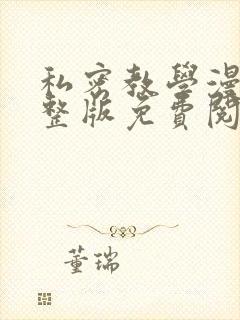 私密教學漫
整版免費閱
董瑞